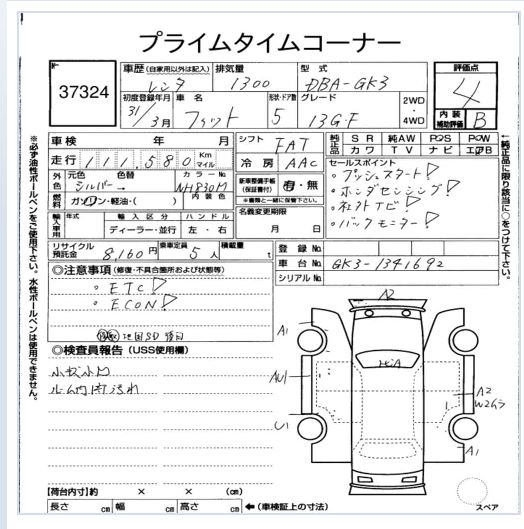 プライムタイムコーナー
37324
車歴 (自家用以外は記入)
レンタ
排気量
1300
型式
DBA-GK3
評価点
4
内装
補助評価
B
初度登録年月
31/3月
車名
フィット
形状・ドア数
5
グレード
13G・F
2WD
4WD
車検 年 月
シフト
FAT
純正品
SR 純AW P・S P・W
カワ TV ナビ エアB
走行 111,580 Km マイル
冷房
AAC
セールスポイント
・プッシュスタート!
・ホンダセンシング!
・社外ナビ!
・バックモニター!
外色
元色
シルバー
色替
カラーNo.
NH830M
内装色
新車整備手帳
(保証書付)
有・無
※書類と一緒に保管下さい。
燃料
ガソリン・軽油・( )
輸入車用
年式
輸入区分
ディーラー・並行
ハンドル
左・右
名義変更期限
月 日
リサイクル
預託金
8,160円
乗車定員
5人
積載量
t
登録No.
車台No.
GK3-1341692
シリアルNo.
◎注意事項(修復・不具合箇所および状態等)
・ETC!
・ECON!
◎検査員報告 (USS使用欄)
小キズ小凹
ルーム内汚れ
【荷台内寸】約 × × (cm)
長さ cm 幅 cm 高さ cm ←(車検証上の寸法)
A2
A1
AU1
U1
A2
A1
スペア
※必ず油性ボールペンをご使用下さい。水性ボールペンは使用できません。
←純正品に限り該当に○をつけて下さい。